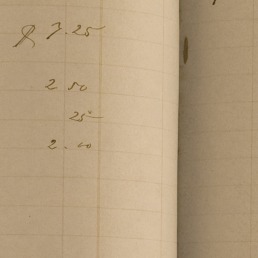 7.25
2.50
25
2.00